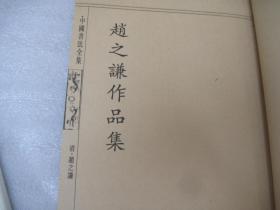 趙之謙作品集
中國書法全集
清·趙之謙